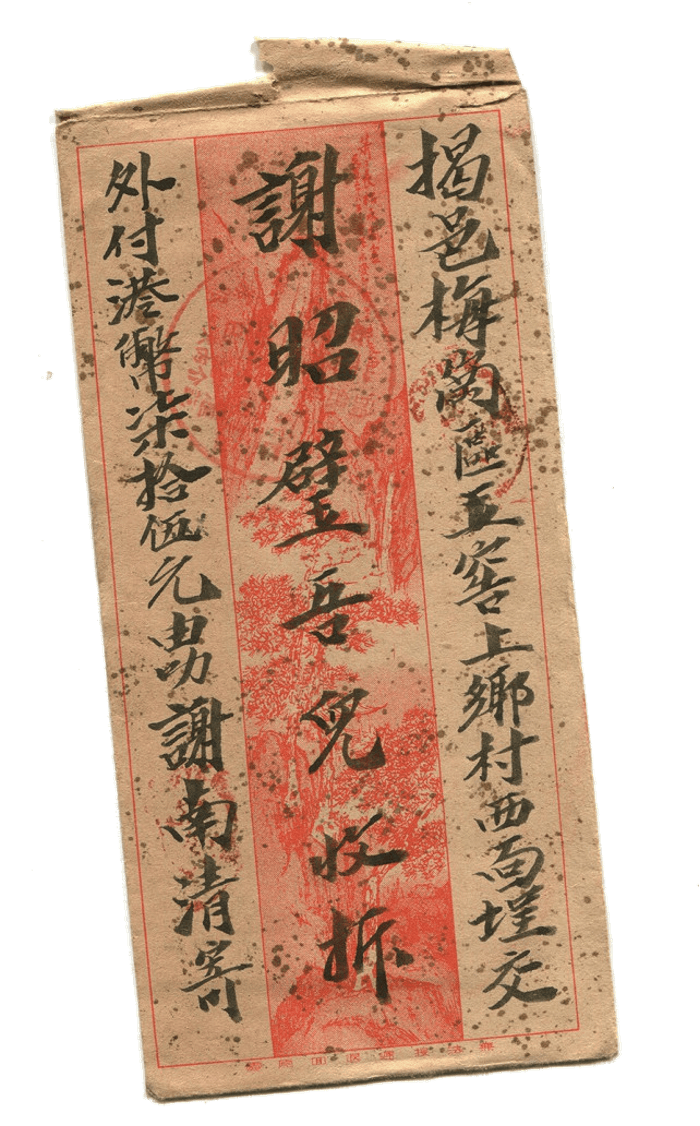 揭邑梅崗區玉窖上鄉村西面埕交
謝昭璧吾兒收拆
外付港幣柒拾伍元 叻謝南清寄